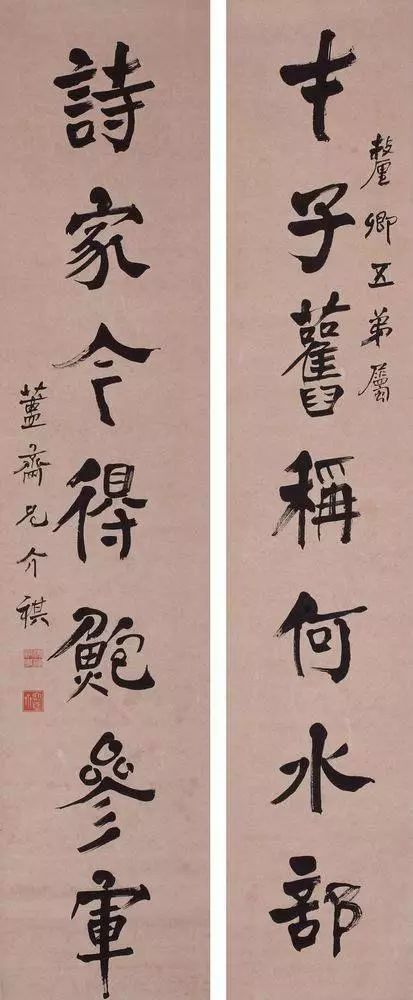 釐卿五弟屬
才子舊稱何水部
詩家今得鮑參軍
簠齋兄介祺